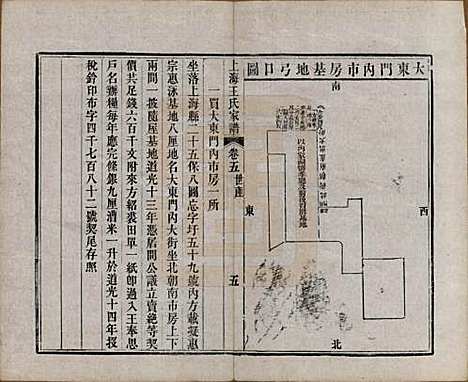 大東門內市房基地弓口圖
南
西
東
北
上海王氏家譜 卷五 世產 五
一買大東門內市房一所
坐落上海縣二十五保八圖忘字圩五十九號內方載擬惠
宗惠泳基地八厘地名大東門內大街坐北朝南市房上下
兩間一披隨屋基地道光十三年憑盾間公議立賣絕等契
價共足錢六百千文卽來方紹裘田單一紙卽過入王奉思
戶名辦糧每年應完條銀九厘漕米一升於道光十四年投
稅鈐印布字四千七百八十二號契尾存照